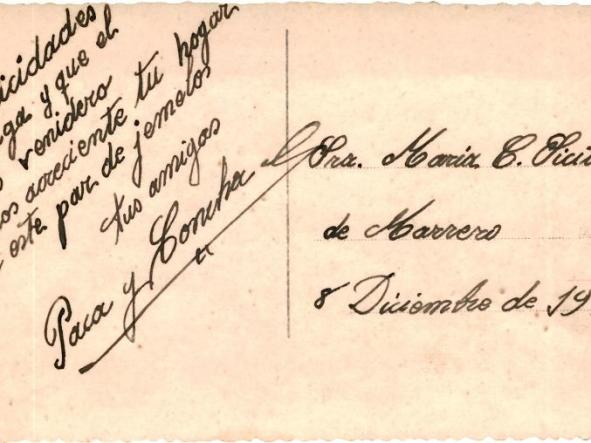 icidades
ga y que el
venidero
os acreciente tu hogar
este par de jemelos
tus amigas
Paca y Concha
Sra. Maria C. Vicii
de Marrero
8 Diciembre de 19